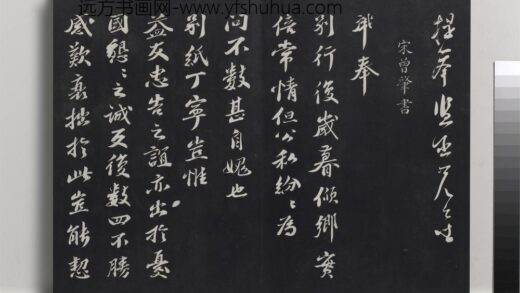 远方书画网-www.yfshuhua.com
宋曾肇書
奉
别行後歲暮傾鄉實
倍常情但公私紛〻為
問不數甚自媿也
别紙丁寧豈惟
益友忠告之誼亦出於憂
國懇〻之誠反復數四不勝
感歎衰拙於此豈能恝